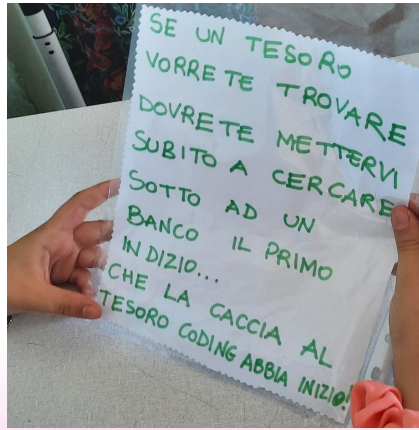 SE UN TESORO
VORRETE TROVARE
DOVRETE METTERVI
SUBITO A CERCARE
SOTTO AD UN
BANCO IL PRIMO
INDIZIO...
CHE LA CACCIA AL
TESORO CODING ABBIA INIZIO!